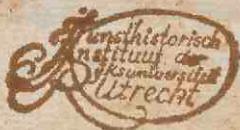 Kunsthistorisch
Instituut der
Rijksuniversiteit
Utrecht